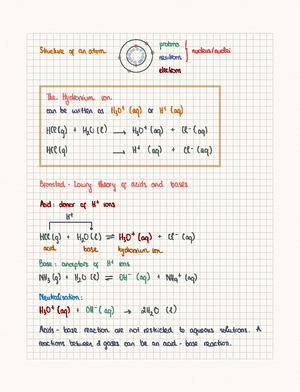 Structure of an atom
protons
neutrons
nucleus/nuclei
electrons
The Hydronium ion
can be written as H3O⁺ (aq) or H⁺ (aq)
HCl(g) + H2O(l) → H3O⁺ (aq) + Cl⁻ (aq)
HCl(g) → H⁺ (aq) + Cl⁻ (aq)
Bronsted - Lowry theory of acids and bases
Acid: donor of H⁺ ions
H⁺
HCl(g) + H2O(l) ⇌ H3O⁺ (aq) + Cl⁻ (aq)
acid base hydronium ion
Base: acceptors of H⁺ ions
NH3(g) + H2O (l) ⇌ OH⁻ (aq) + NH4⁺ (aq)
Neutralisation:
H3O⁺ (aq) + OH⁻ (aq) → 2H2O (l)
Acids - base reaction are not restricted to aqueous solutions. A
reactions between 2 gases can be an acid - base reaction.